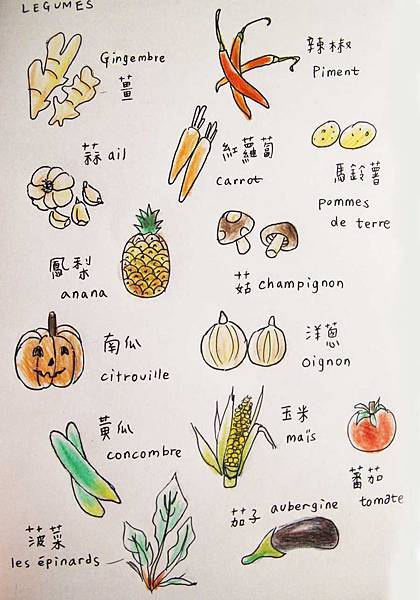 LEGUMES
Gingembre
薑
辣椒
Piment
蒜 ail
紅蘿蔔
carrot
馬鈴薯
pommes
de terre
鳳梨
anana
菇 champignon
南瓜
citrouille
洋蔥
oignon
黃瓜
concombre
玉米
maïs
蕃茄
tomate
菠菜
les épinards
茄子 aubergine